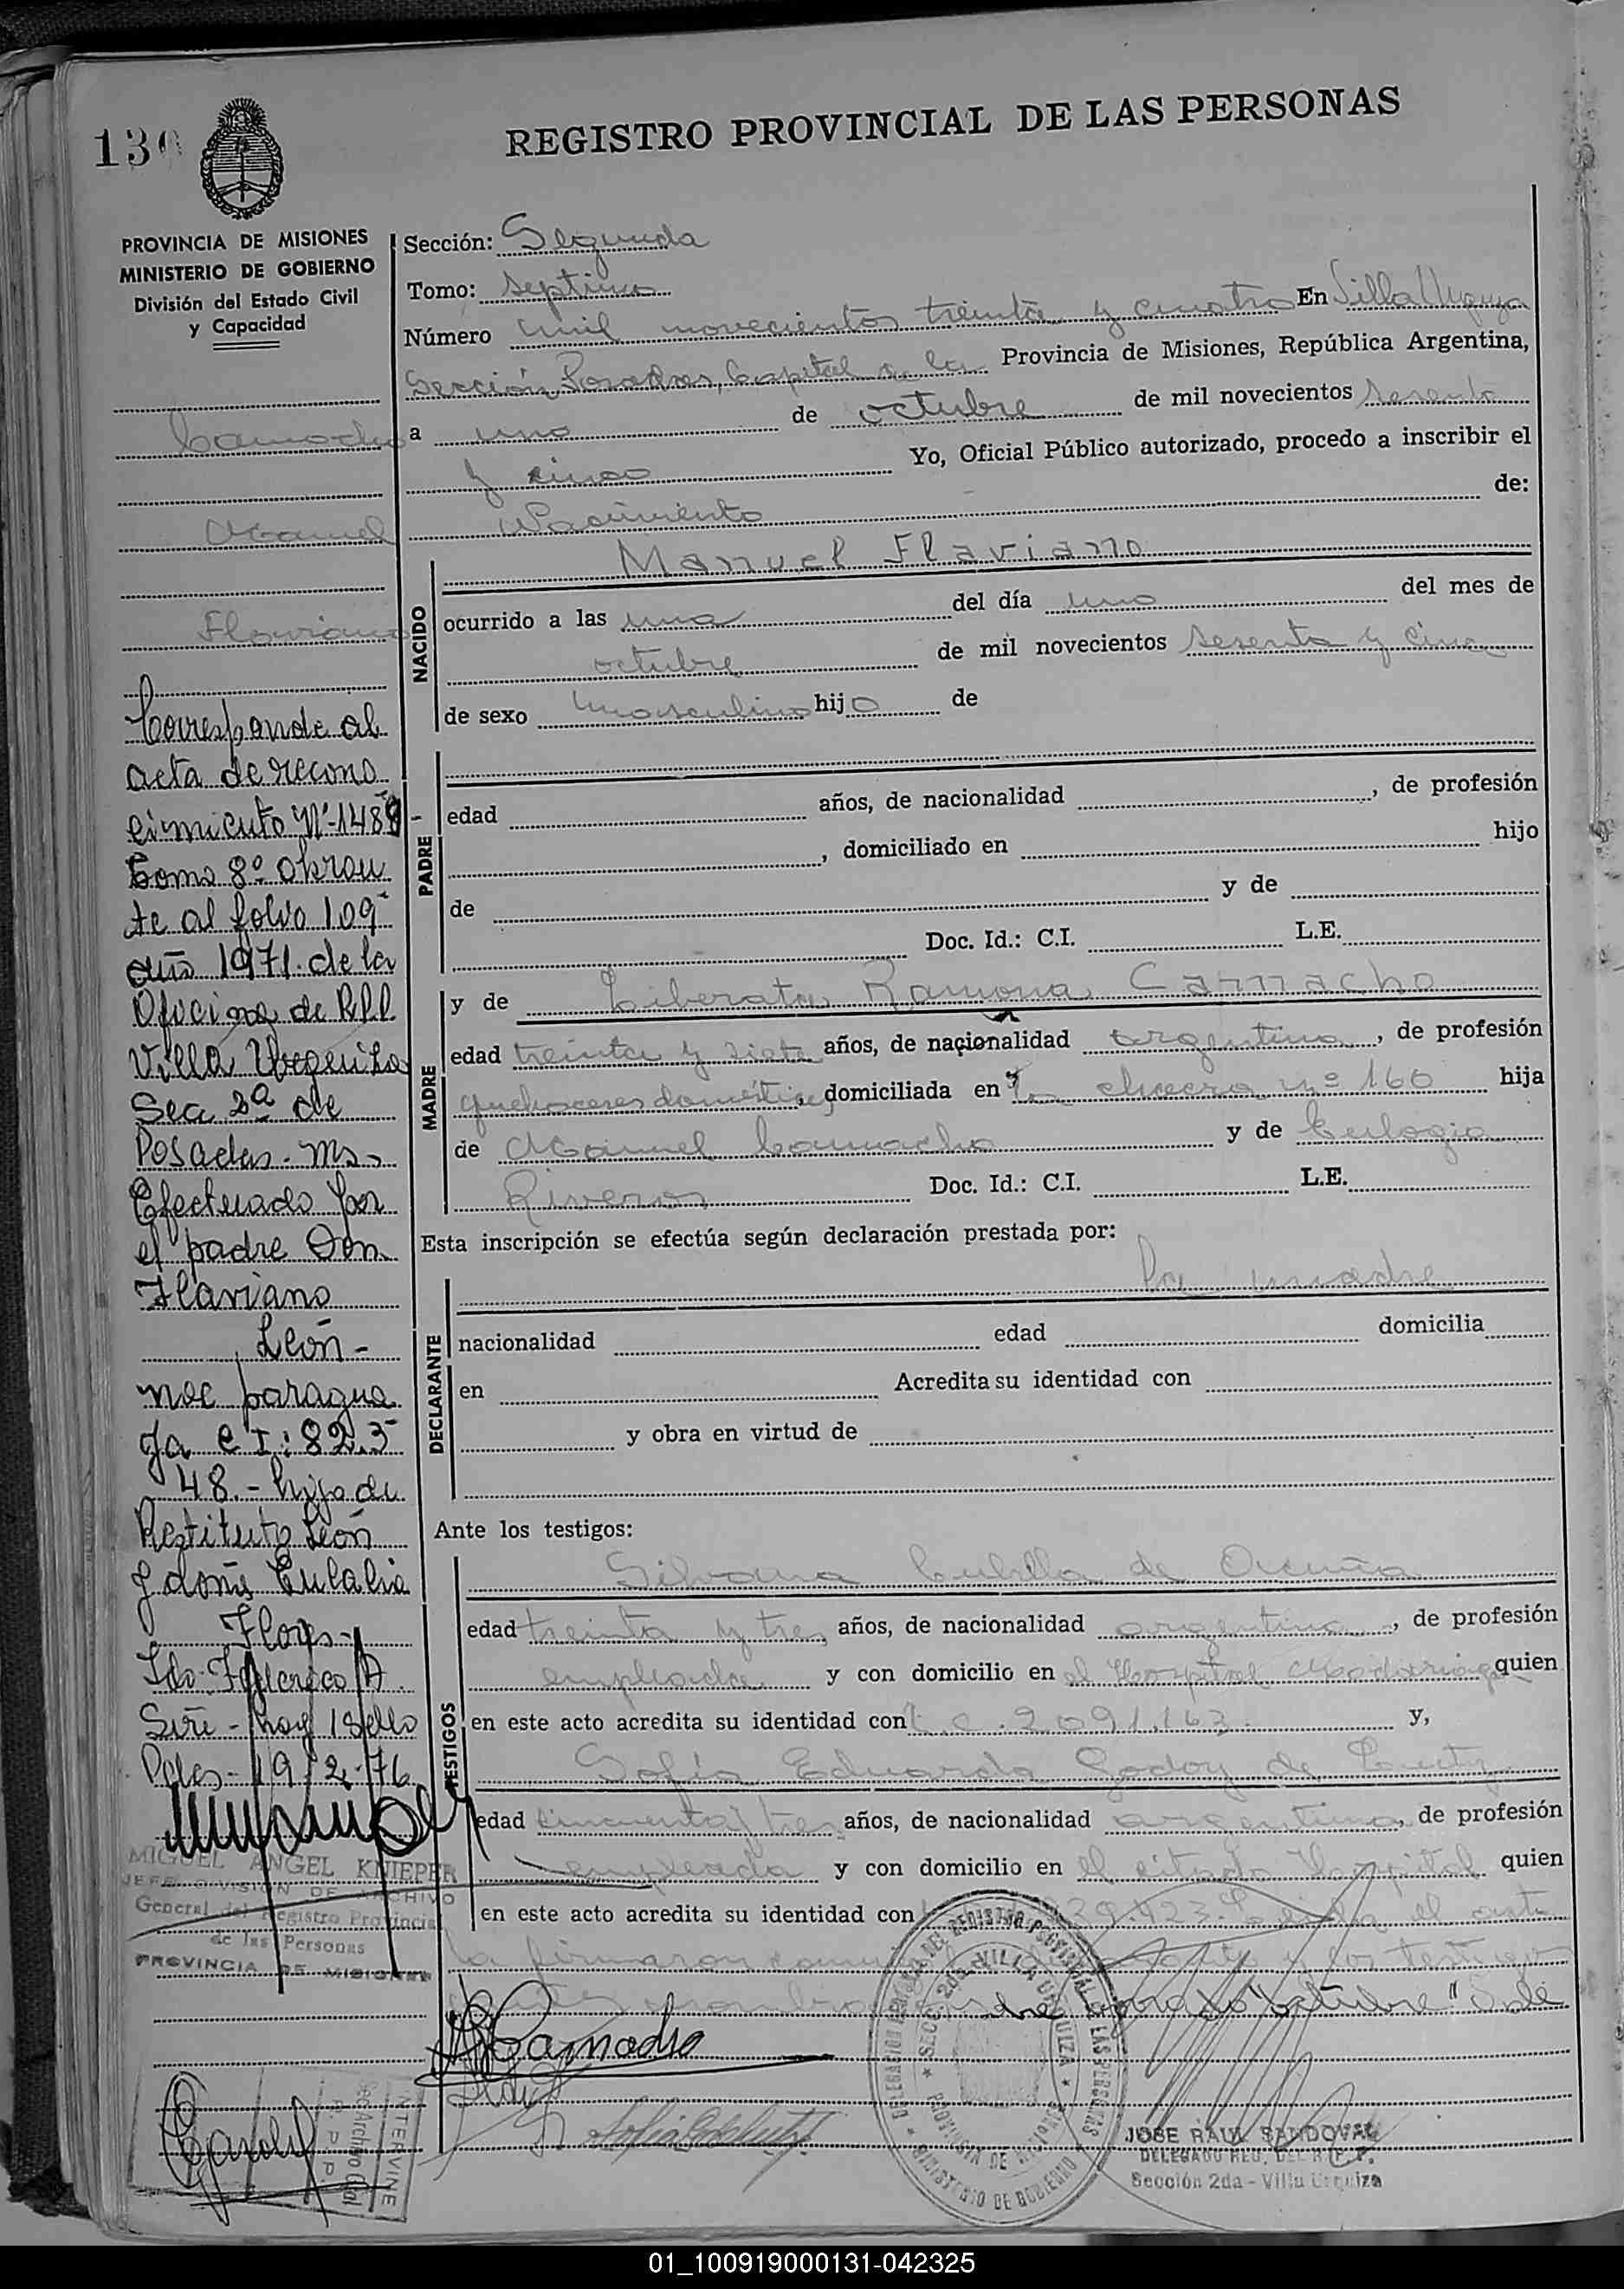 130
REGISTRO PROVINCIAL DE LAS PERSONAS
PROVINCIA DE MISIONES
MINISTERIO DE GOBIERNO
División del Estado Civil
y Capacidad
Camacho
Manuel
Flaviano
Corresponde al
acta de recono
cimiento Nº 1489
Tomo 8º obran
te al folio 109
año 1971. de la
Oficina de R.P.P.
Villa Urquiza
Sec 2ª de
Posadas - Ms -
Efectuado por
el padre Don
Flaviano
León -
nac paragua
ya C I: 823
48. - hijo de
Restituto León
y doña Eulalia
Flores -
Hay 1 Sello
Pdas - 19-2-76
MIGUEL ANGEL KNIEPER
JEFE DIVISION DE ARCHIVO
General del Registro Provincial
de las Personas
PROVINCIA DE MISIONES
Sección: Segunda
Tomo: septimo
Número mil novecientos treinta y cuatro En Villa Urquiza
Sección Posadas, Capital de la Provincia de Misiones, República Argentina,
a uno de octubre de mil novecientos sesenta
y cinco Yo, Oficial Público autorizado, procedo a inscribir el
Nacimiento de:
NACIDO
Manuel Flaviano
ocurrido a las una del día uno del mes de
octubre de mil novecientos sesenta y cinco
de sexo masculino hijo de
PADRE
edad años, de nacionalidad , de profesión
, domiciliado en hijo
de y de
Doc. Id.: C.I. L.E.
MADRE
y de Liberata Ramona Camacho
edad treinta y siete años, de nacionalidad argentina, de profesión
quehaceres domésticos, domiciliada en la chacra nº 160 hija
de Manuel Camacho y de Eulogia
Riveros Doc. Id.: C.I. L.E.
Esta inscripción se efectúa según declaración prestada por:
DECLARANTE
La madre
nacionalidad edad domicilia
en Acredita su identidad con
y obra en virtud de
Ante los testigos:
TESTIGOS
Silvana Cubilla de Acuña
edad treinta y tres años, de nacionalidad argentina, de profesión
empleada y con domicilio en el Hospital Madariaga quien
en este acto acredita su identidad con L.C. 2.091.163. y,
Sofía Eduarda Godoy de
edad cincuenta y tres años, de nacionalidad argentina, de profesión
empleada y con domicilio en el citado Hospital quien
en este acto acredita su identidad con 39.423. Leída el acta
la firmaron y los testigos
"octubre" Vale
Camacho
DELEGACION DEL REGISTRO PROVINCIAL DE LAS PERSONAS
SECC. 2da. VILLA URQUIZA
PROVINCIA DE MISIONES
MINISTERIO DE GOBIERNO
JOSE RAUL SANDOVAL
DELEGADO REG. DEL R. P. P.
Sección 2da - Villa Urquiza
INTERVINE
Sec Archivo Gral
R. P. P.
01_100919000131-042325